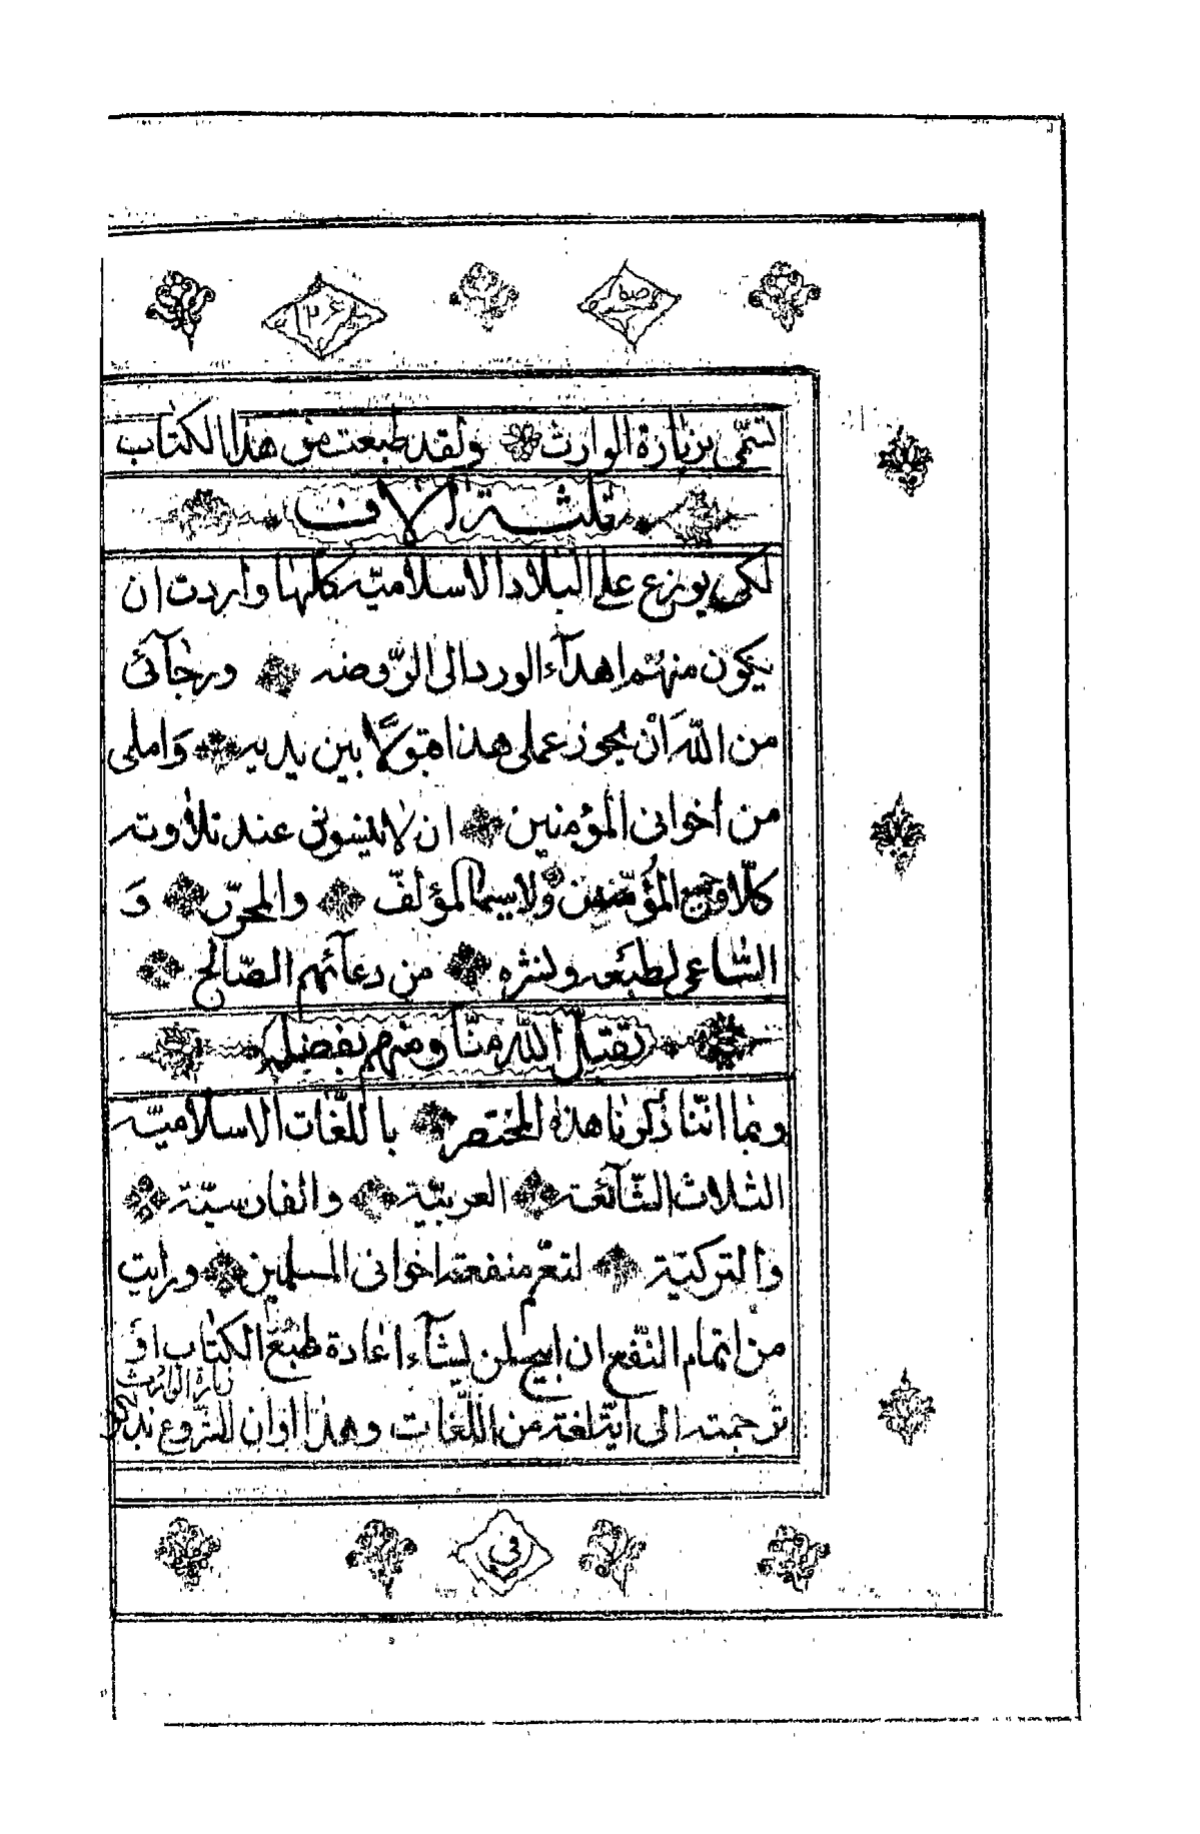 صحيفه
١٢۶
لتسمّى بزيارة الوارث ولقد طبعت من هذا الكتاب
ثلثة الاف
لكى يوزع على البلاد الاسلاميّه كلها واردت ان
يكون منهم اهدآء الورد الى الرّوضه ورجآئى
من اللّه اَنْ يجوز عملى هذا قبولًا بين يديه وَاملى
من اخوانى المؤمنين ان لا ينسونى عند تلاوته
كلّا وجميع المؤمنين ولا سيما المؤلفّ والمحرّر وَ
السّاعى لطبعه ولنشره من دعآئهم الصّالح
تقبّل اللّه منّا ومنهم بفضله
وبما انّنا ذكرنا هذه المختصر با اللّغات الاسلاميّه
الثلاث الشّآئعة العربيّة والفارسيّة
والتركيّة لتعمّ منفعته اخوانى المسلمين ورايت
من اتمام النّفع ان ابيح لمن يشآء اعادة طبع الكتاب او
ترجمته الى ايّة لغة من اللّغات وهذا اوان للشروع بذكر
زيارة الوارث
في